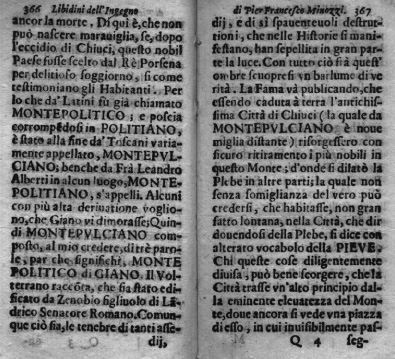 366 Libidini dell'Ingegno
ancor la morte. Di qui è, che non
può nascere marauiglia, se, dopo
l'eccidio di Chiuci, questo nobil
Paese fusse scelto dal Rè Porsena
per delitioso soggiorno, si come
testimoniano gli Habitanti. Per
lo che da' Latini fù già chiamato
MONTEPOLITICO; e poscia
corrompẽdosi in POLITIANO,
è stato alla fine da' Toscani varia-
mente appellato, MONTEPVL-
CIANO; benche da Frà Leandro
Alberti in alcun luogo, MONTE-
POLITIANO, s'appelli. Alcuni
con più alta deriuatione voglio-
no, che Giano vi dimorasse; Quin-
di MONTEPVLCIANO com-
posto, al mio credere, di trè paro-
le, par che significhi, MONTE
POLITICO di GIANO. Il Vol-
terrano raccõta, che sia stato edi-
ficato da Zenobio figliuolo di Lã-
drico Senatore Romano. Comun-
que ciò sia, le tenebre di tanti asse-
dij,
di Pier Francesco Minozzi. 367
dij, e di sì spauenteuoli destrut-
tioni, che nelle Historie si mani-
festano, han sepellita in gran par-
te la luce. Con tutto ciò frà quest'
ombre scuopresi vn barlume di ve-
rità. La Fama và publicando, che
essendo caduta à terra l'antichis-
sima Città di Chiuci (la quale da
MONTEPVLCIANO è noue
miglia distante) risorgessero con
sicuro ritiramento i più nobili in
questo Monte; d'onde si dilatò la
Plebe in altre parti; la quale non
senza somiglianza del vero può
credersi, che habitasse, non gran
fatto lontana, nella Città, che di-
douendosi della Plebe, si dice con
alterato vocabolo della PIEVE.
Chi queste cose diligentemente
diuisa, può bene scorgere, che la
Città trasse vn'alto principio dal-
la eminente eleuatezza del Mon-
te, doue ancora si vede vna piazza
di esso, in cui inuisibilmente pas-
Q 4 seg-